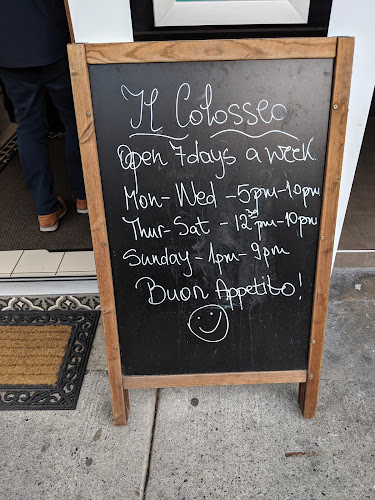 Il Colosseo
Open 7days a week
Mon-Wed -5pm-10pm
Thur-Sat - 12³⁰pm-10pm
Sunday-1pm-9pm
Buon Appetito!